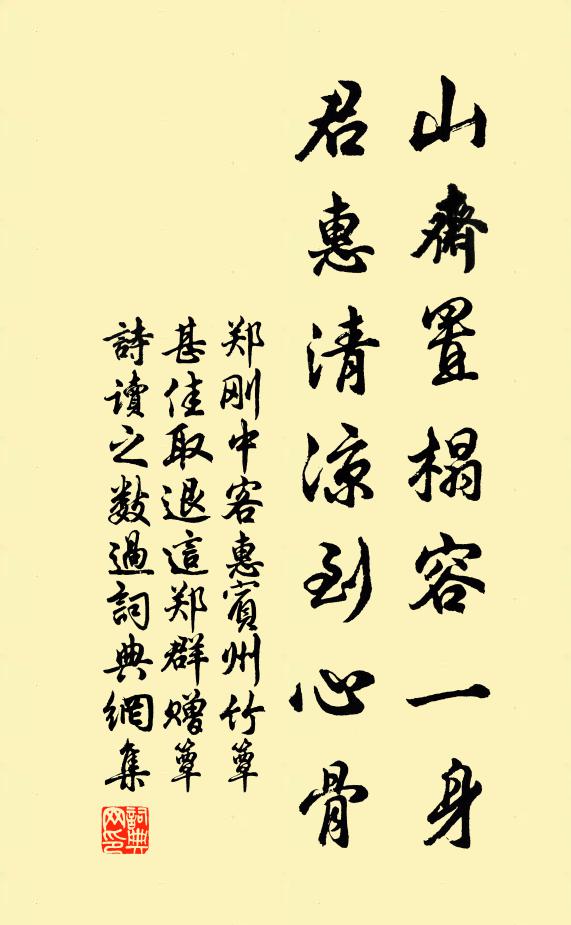 山齋置榻容一身
君惠清涼到心骨
郑刚中客惠賓州竹簟
甚佳取退這郑群赠簟
詩讀之数過詞典網集
詞典网印